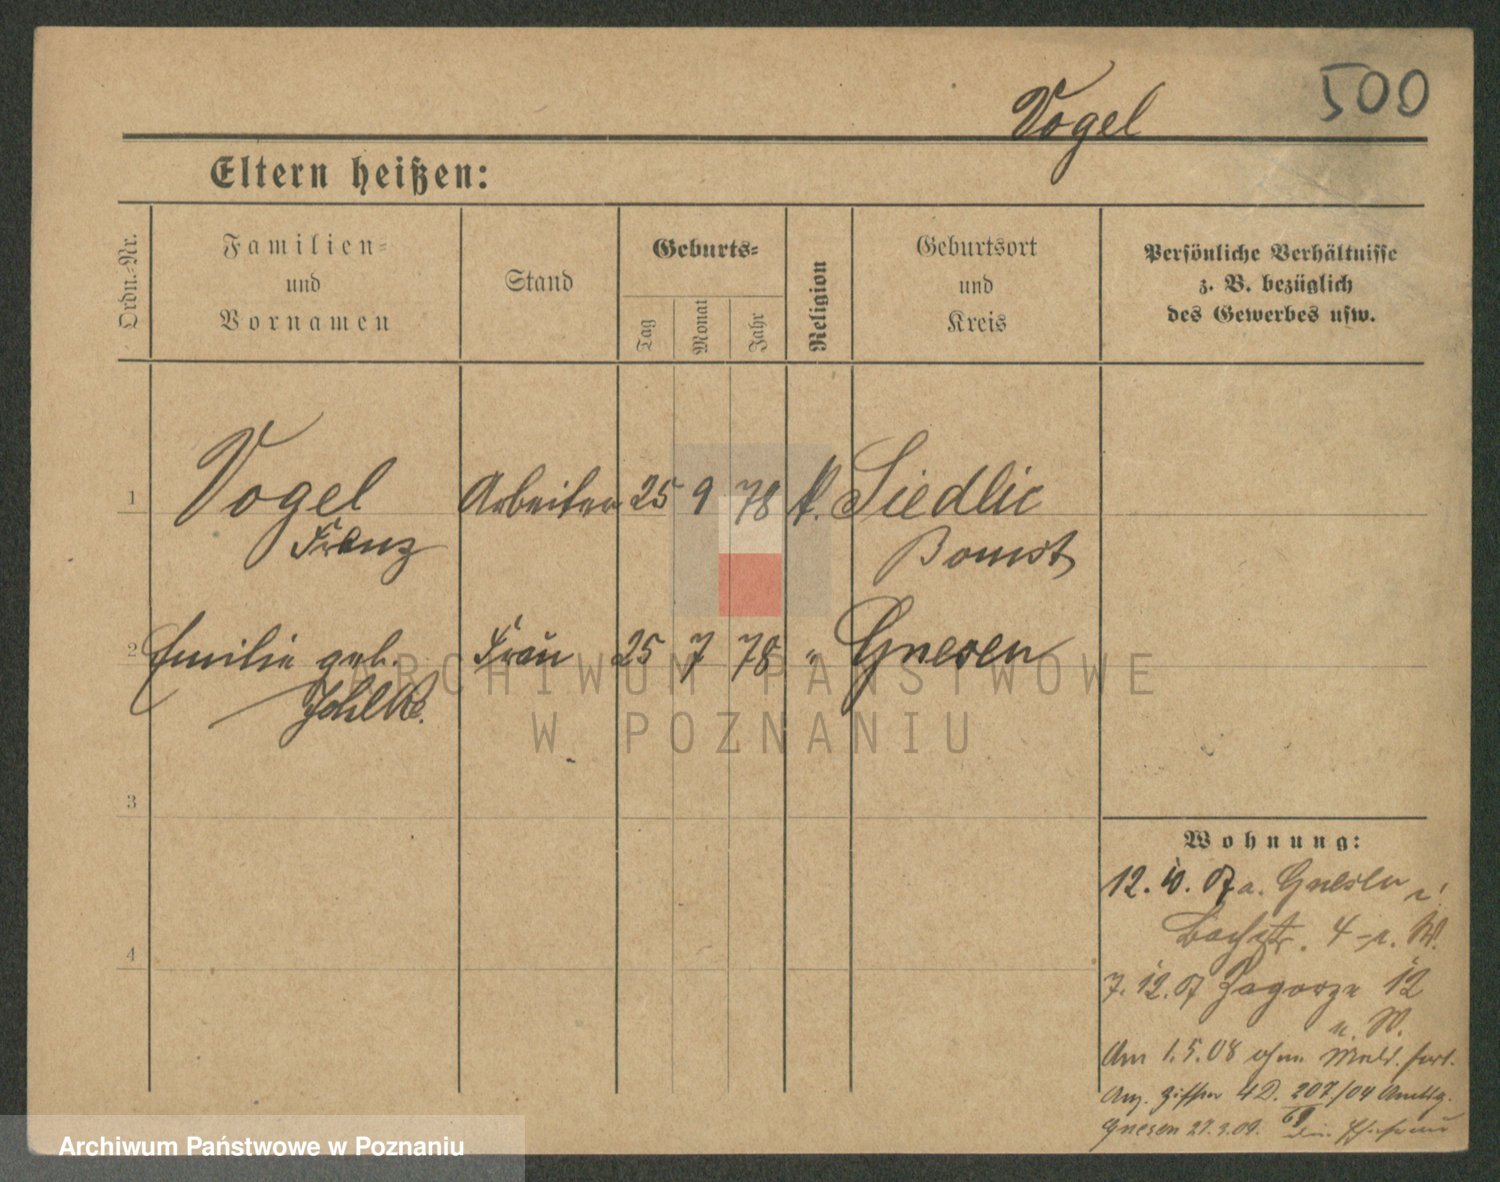 500
Vogel
Eltern heißen:
Ordn.-Nr.
Familien-
und
Vornamen
Stand
Geburts-
Tag
Monat
Jahr
Religion
Geburtsort
und
Kreis
Persönliche Verhältnisse
z. B. bezüglich
des Gewerbes usw.
1 Vogel Arbeiter 25 9 78 k. Siedlic
Franz Bomst
2 Emilie geb. Frau 25 7 78 " Gnesen
ARCHIWUM PAŃSTWOWE
W POZNANIU
3
4
Wohnung:
12. 10. 07 a. Gnesen
Bachstr. 4 W.
7. 12. 07 Zagorze 12
u. W.
Am 1.5.08 ohne Meld. fort.
4 D. 207/04
Gnesen
Archiwum Państwowe w Poznaniu